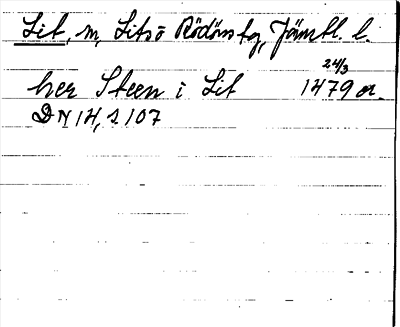 Lit, m, Litsö Rödöns tg, Jämtl. l.
24/3
her Steen i Lit 1479 or.
DN 14, s 107